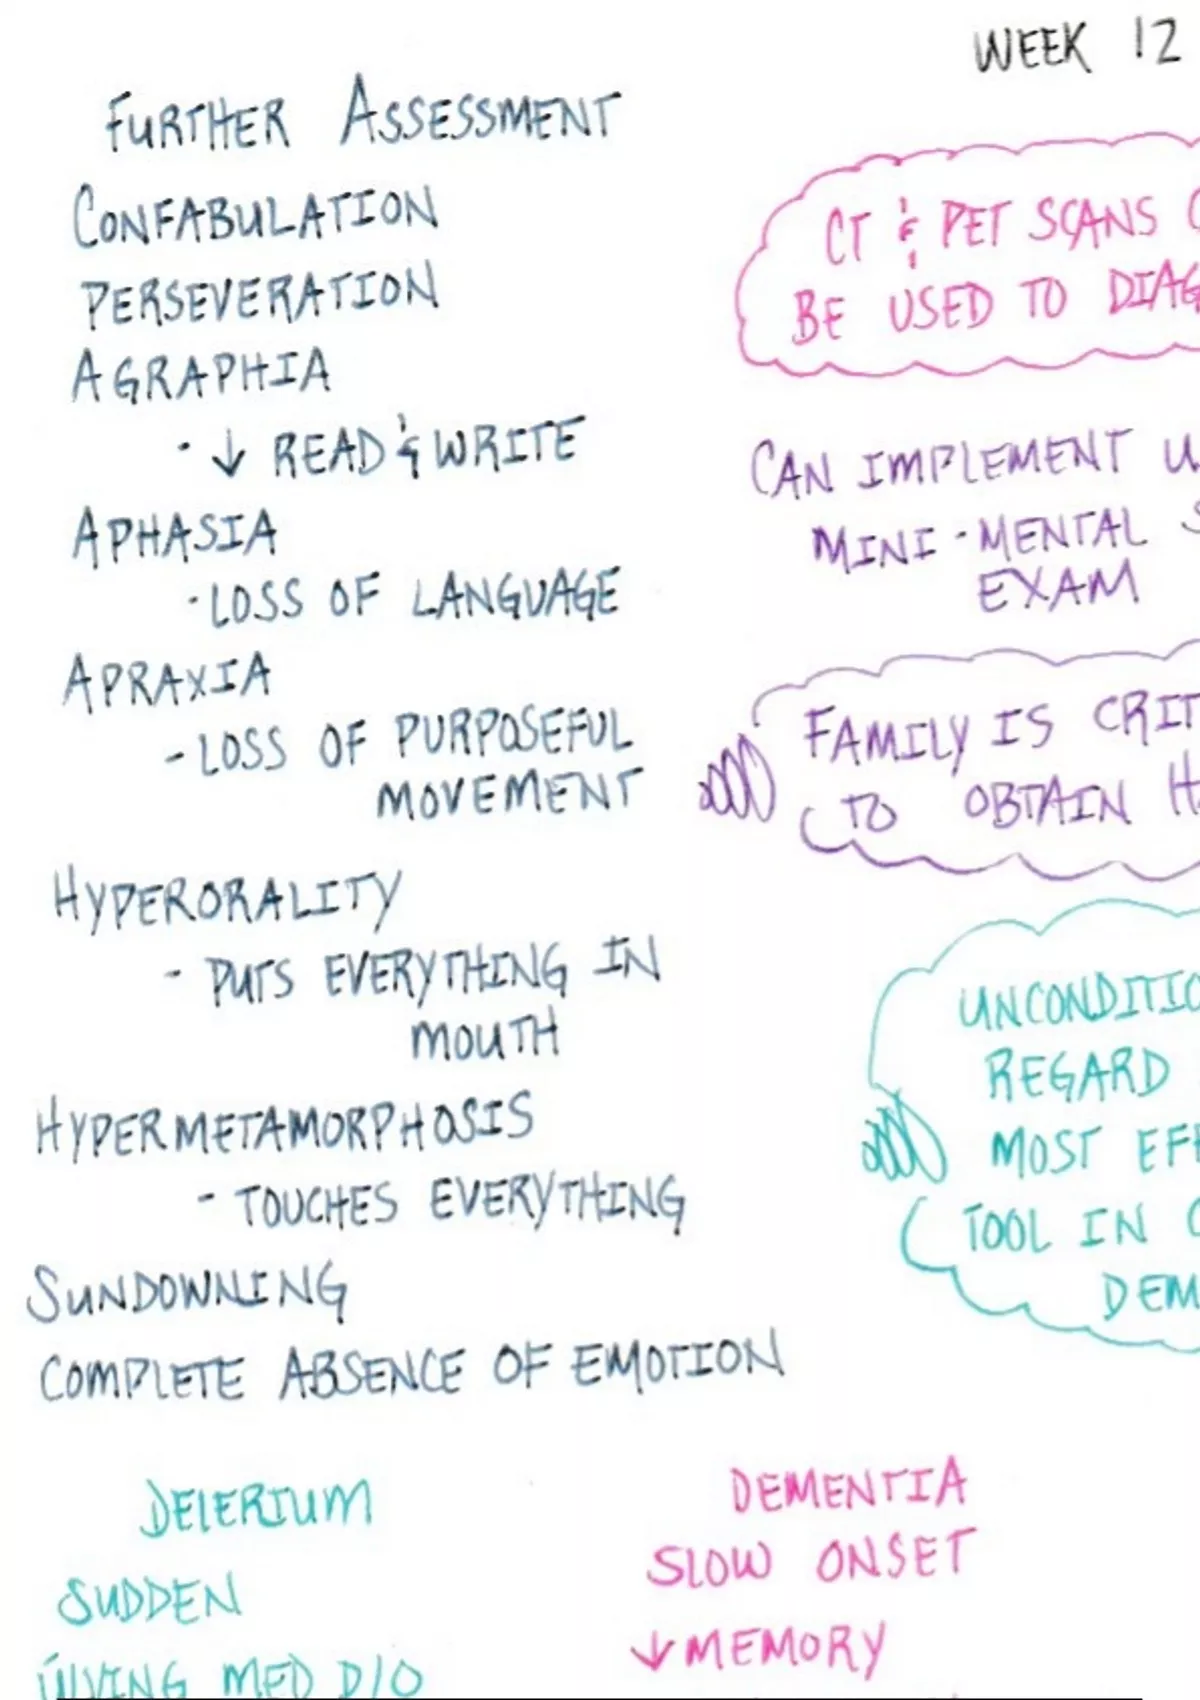 WEEK 12
FURTHER ASSESSMENT
CONFABULATION
PERSEVERATION
AGRAPHIA
· ↓ READ & WRITE
APHASIA
· LOSS OF LANGUAGE
APRAXIA
- LOSS OF PURPOSEFUL
MOVEMENT
HYPERORALITY
- PUTS EVERYTHING IN
MOUTH
HYPERMETAMORPHOSIS
- TOUCHES EVERYTHING
SUNDOWNING
COMPLETE ABSENCE OF EMOTION
CT & PET SCANS
BE USED TO DIAG
CAN IMPLEMENT U
MINI-MENTAL S
EXAM
FAMILY IS CRIT
TO OBTAIN H
UNCONDITIO
REGARD
MOST EFF
TOOL IN C
DEM
DELERIUM
SUDDEN
MED D/O
DEMENTIA
SLOW ONSET
↓ MEMORY